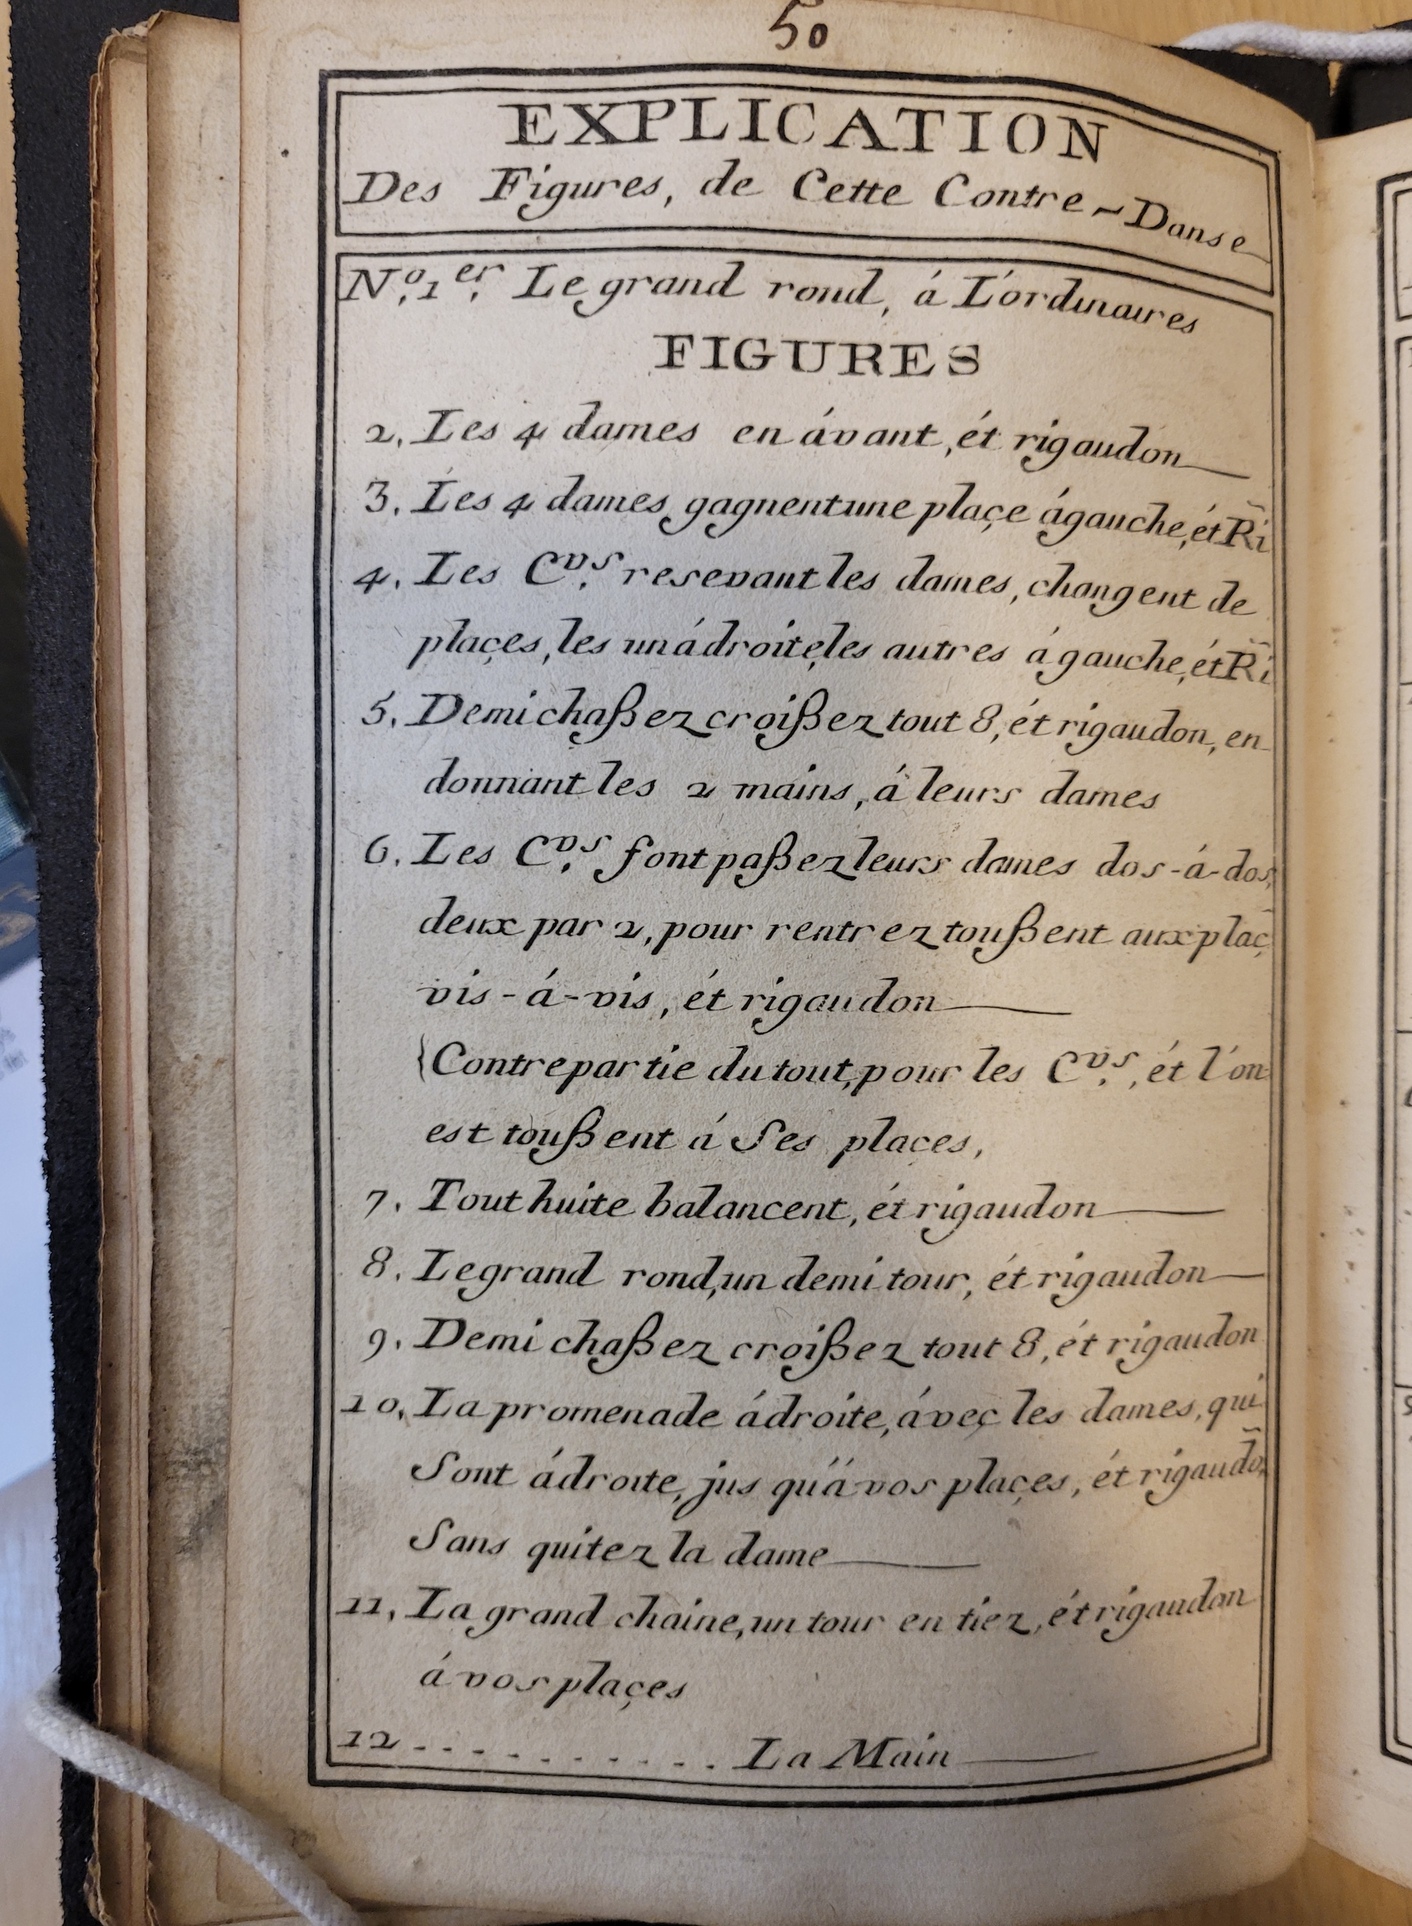 50
EXPLICATION
Des Figures, de Cette Contre-Danse
N.º1er. Le grand rond, á L'órdinaires
FIGURES
2. Les 4 dames en ávant, ét rigaudon
3. Les 4 dames gagnent une plaçe ágauche, ét Ri
4. Les C.vs resevant les dames, changent de
plaçes, les un ádroite, les autres ágauche, ét Ri
5. Demi chaßez croißez tout 8, ét rigaudon, en
donnant les 2 mains, á leurs dames
6. Les C.vs font paßez leurs dames dos-á-dos,
deux par 2, pour rentrez toußent aux plaç
vis-á-vis, ét rigaudon
{Contrepartie du tout, pour les C.vs, ét l'on
est toußent á Ses plaçes,
7. Tout huite balancent, ét rigaudon
8. Le grand rond, un demi tour, ét rigaudon
9. Demi chaßez croißez tout 8, ét rigaudon
10. La promenade ádroite, áveç les dames, qui
Sont ádroite, jus qu'á vos plaçes, ét rigaudõ
Sans quitez la dame
11. La grand chaine, un tour en tiez, ét rigaudon
á vos plaçes
12 . . . . . . . . . . . La Main